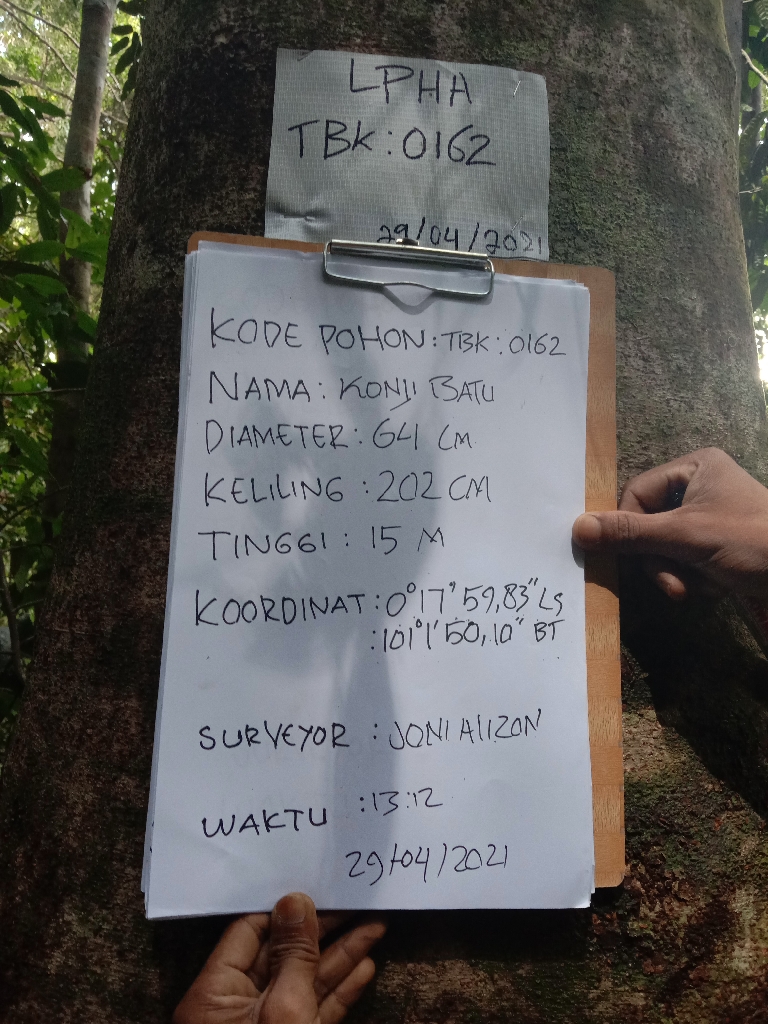 LPHA
TBK:0162
29/04/2021
KODE POHON: TBK: 0162
NAMA: KONJI BATU
DIAMETER: 64 CM
KELILING : 202 CM
TINGGI : 15 M
KOORDINAT : 0°17'59,83" LS
: 101°1'50,10" BT
SURVEYOR : JONI AlIZON
WAKTU : 13:12
29/04/2021